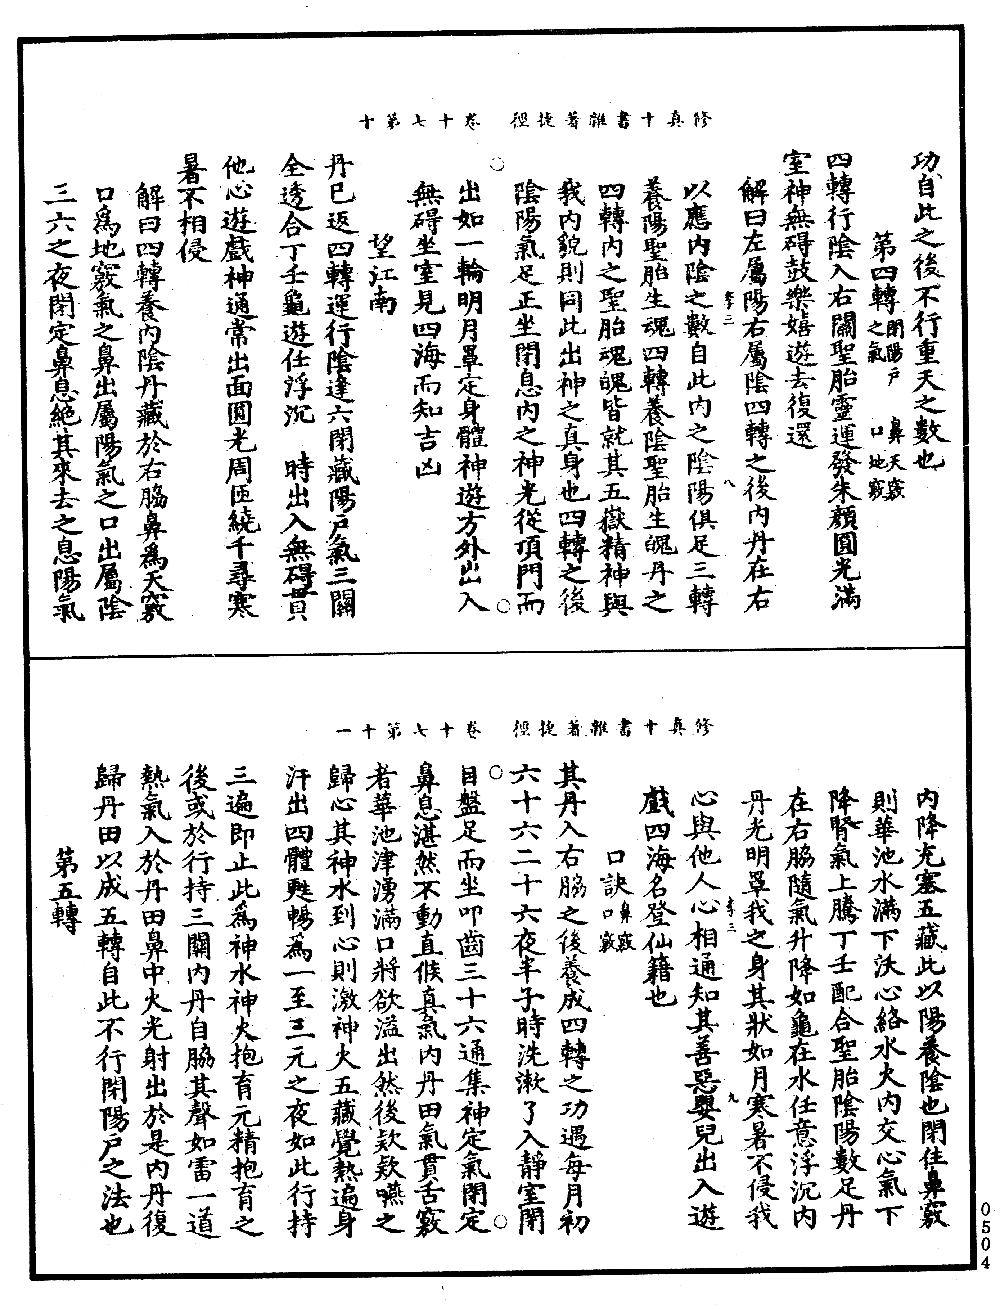 修真十書雜著捷徑　卷十七第十
功自此之後不行重天之數也
第四轉閉陽戶之氣　鼻天竅口地竅
四轉行陰入右關聖胎靈運發朱顏圓光滿
室神無碍鼓樂嬉遊去復還
解曰左屬陽右屬陰四轉之後內丹在右
以應內陰之數自此內之陰陽俱足三轉
養陽聖胎生魂四轉養陰聖胎生魄丹之
四轉內之聖胎魂魄皆就其五嶽精神與
我內貌則同此出神之真身也四轉之後
陰陽氣足正坐閉息內之神光從頂門而
出如一輪明月罩定身體神遊方外出入
無碍坐室見四海而知吉凶
望江南
丹已返四轉運行陰達六閉藏陽戶氣三關
全透合丁壬龜遊任浮沉　時出入無碍貫
他心遊戲神通常出面圓光周匝繞千尋寒
暑不相侵
解曰四轉養內陰丹藏於右脇鼻爲天竅
口爲地竅氣之鼻出屬陽氣之口出屬陰
三六之夜閉定鼻息絕其來去之息陽氣
修真十書雜著捷徑　卷十七第十一
內降充塞五藏此以陽養陰也閉住鼻竅
則華池水滿下沃心絡水火內交心氣下
降腎氣上騰丁壬配合聖胎陰陽數足丹
在右脇隨氣升降如龜在水任意浮沉內
丹光明罩我之身其狀如月寒暑不侵我
心與他人心相通知其善惡嬰兒出入遊
戲四海名登仙籍也
口訣鼻竅口竅
其丹入右脇之後養成四轉之功遇每月初
六十六二十六夜半子時洗漱了入靜室閉
目盤足而坐叩齒三十六通集神定氣閉定
鼻息湛然不動直候真氣內丹田氣貫舌竅
者華池津湧滿口將欲溢出然後欵欵嚥之
歸心其神水到心則激神火五藏覺熱遍身
汗出四體甦暢爲一至三元之夜如此行持
三遍即止此爲神水神火抱育元精抱育之
後或於行持三關內丹自脇其聲如雷一道
熱氣入於丹田鼻中火光射出於是內丹復
歸丹田以成五轉自此不行閉陽戶之法也
第五轉
0504